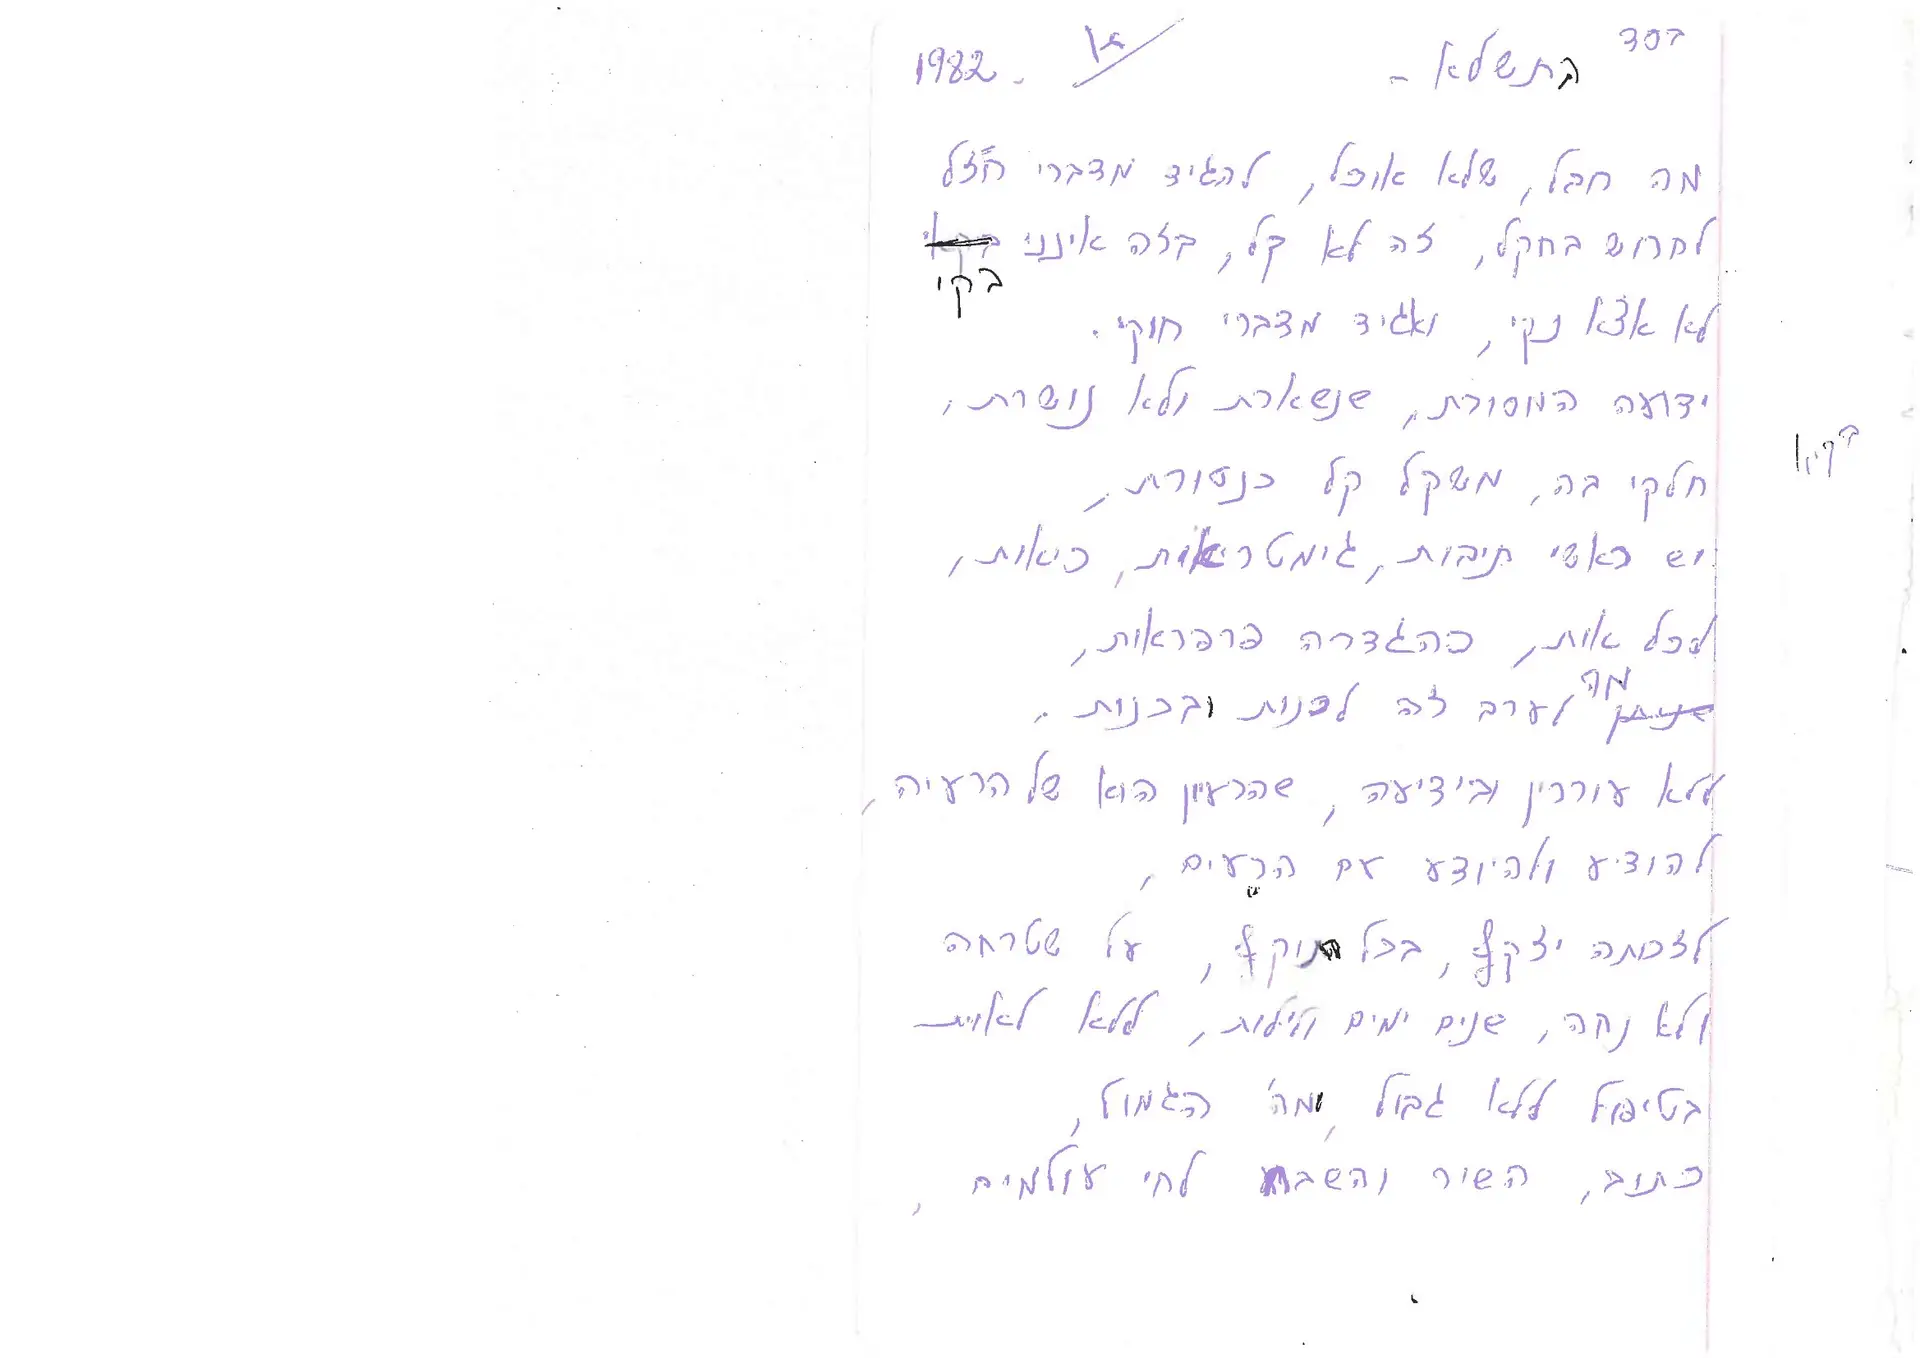 בסד
בתשלא - 1982.
מה חבל, שלא אוכל, להגיד מדברי חז״ל
לחרוש בחקל, זה לא קל, בזה אינני
בקי
לא אצא נקי, ואגיד מדברי חוקי.
ידועה המסורת, שנשארת ולא נושרת,
בקיא
חלקי בה, משקל קל כנסורת,
יש ראשי תיבות, גימטריאות, כיאות,
לכל אות, כהגדרה פרפראות,
מה
לערב זה לפנות ובכנות.
ללא עוררין ובידיעה, שהרעיון הוא של הרעיה,
להודיע ולהיודע עם הרעים,
לזכותה יזקף, בכל תוקף, על שטרחה
ולא נחה, שנים ימים ולילות, ללא לאות
בטיפול ללא גבול, ומה הגמול,
כתוב, השיר והשבח לחי עולמים,